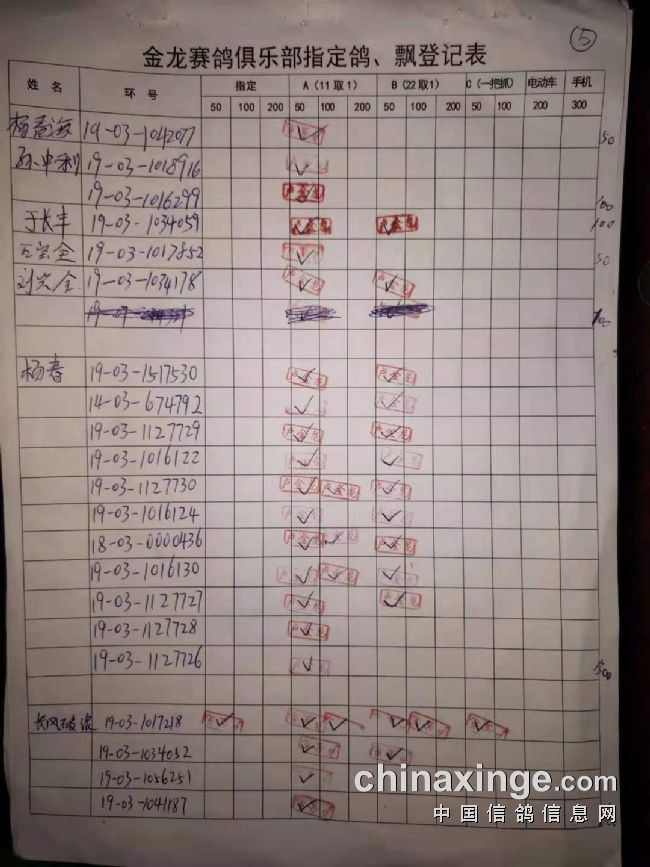 5
金龙赛鸽俱乐部指定鸽、飘登记表
姓 名 环 号 指定 A（11取1） B（22取1） C（一把抓） 电动车 手机
50 100 200 50 100 200 50 100 200 50 100 200 300
19-03-1042077 50
孙中利 19-03-1018916
19-03-1016299 100
于长丰 19-03-1034059 100
19-03-1017852 50
19-03-1034178
100
杨春 19-03-1517530
14-03-674792
19-03-1127729
19-03-1016122
19-03-1127730
19-03-1016124
18-03-0000436
19-03-1016130
19-03-1127727
19-03-1127728
19-03-1127726
长风破浪 19-03-1017218
19-03-1034052
19-03-1056251
19-03-1041187
chinaxinge.com
中国信鸽信息网